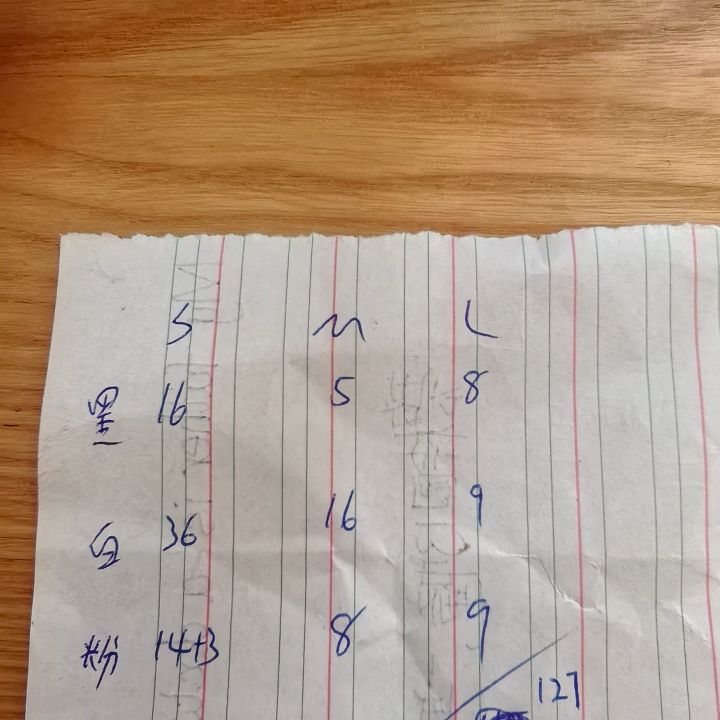 S M L
黑 16 5 8
白 36 16 9
粉 14+3 8 9
127